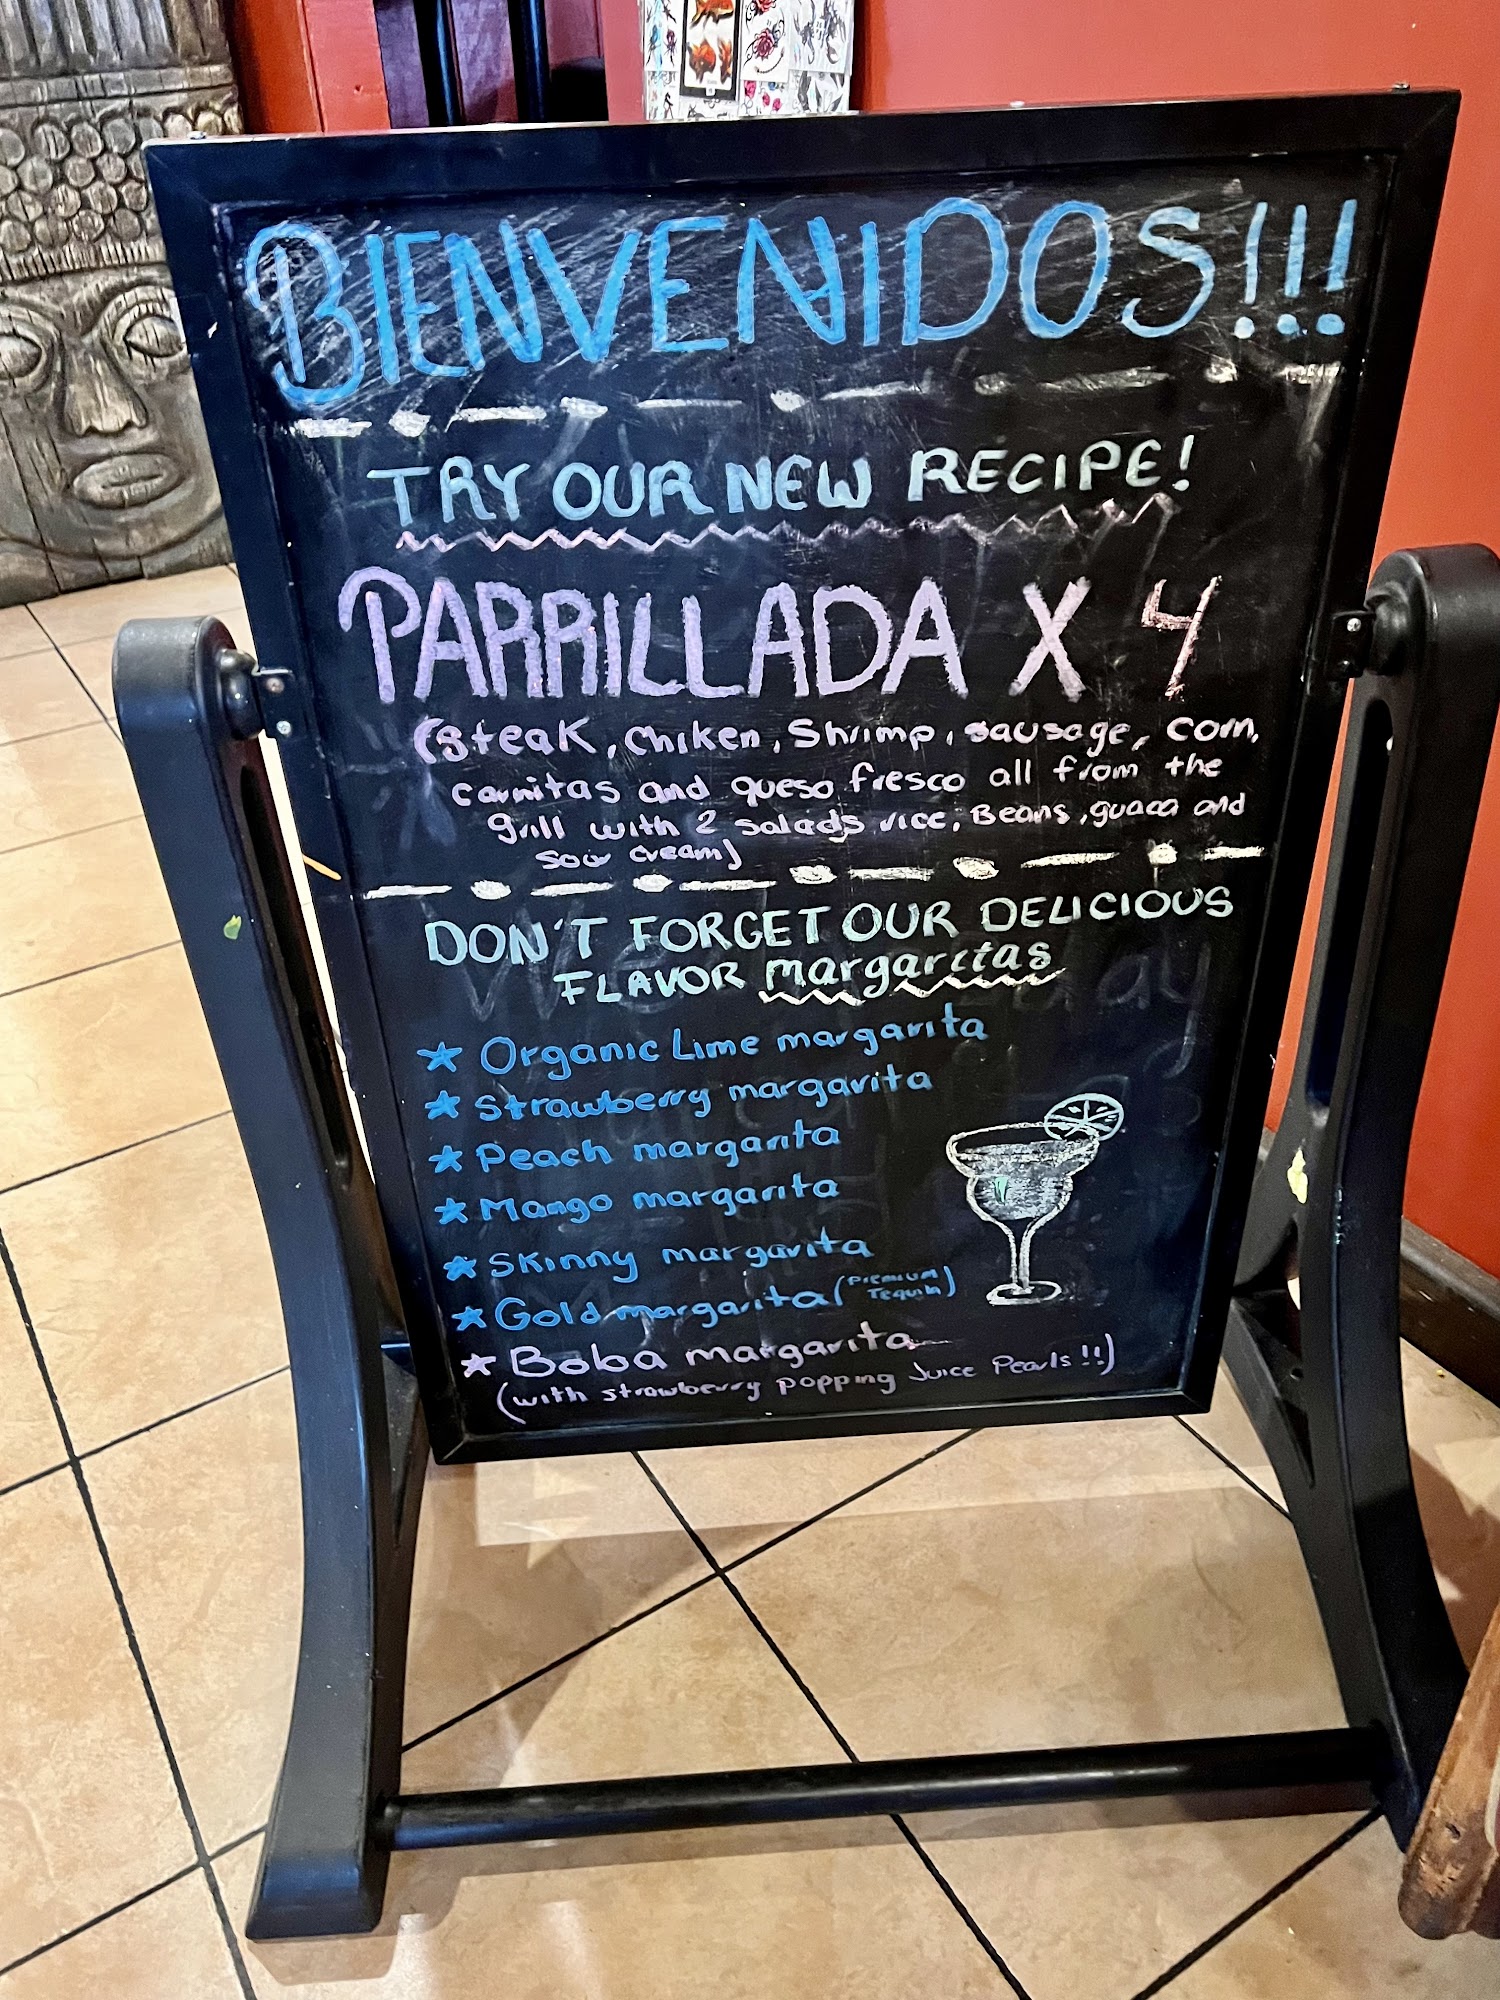 BIENVENIDOS!!!
TRY OUR NEW RECIPE!
PARRILLADA X 4
(Steak, Chiken, Shrimp, sausage, corn,
carnitas and queso fresco all from the
grill with 2 salads rice, Beans, guaca and
sour cream)
DON'T FORGET OUR DELICIOUS
FLAVOR margaritas
★ Organic Lime margarita
★ Strawberry margarita
★ Peach margarita
★ Mango margarita
★ Skinny margarita
★ Gold margarita (Premium Tequila)
★ Boba margarita
(with strawberry popping Juice Pearls!!)